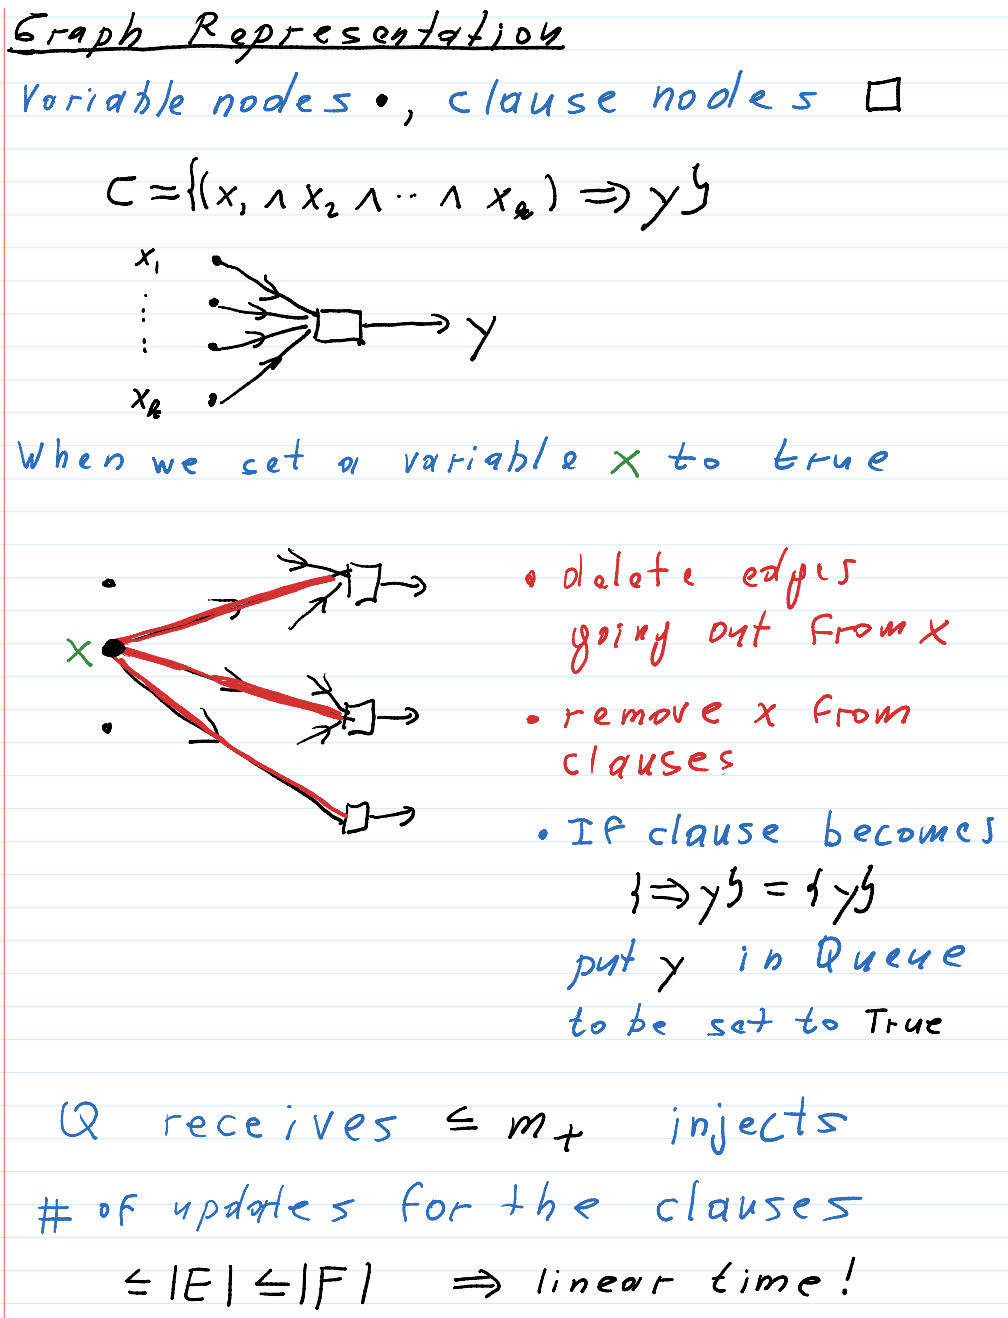 Graph Representation
Variable nodes •, clause nodes □
C = {(x₁ ∧ x₂ ∧ ·· ∧ x_k) ⇒ y}
x₁
⋮
x_k
y
When we set a variable x to true
x
• delete edges
going out from x
• remove x from
clauses
• If clause becomes
{⇒ y} = {y}
put y in Queue
to be set to True
Q receives ≤ m₊ injects
# of updates for the clauses
≤ |E| ≤ |F| ⇒ linear time!